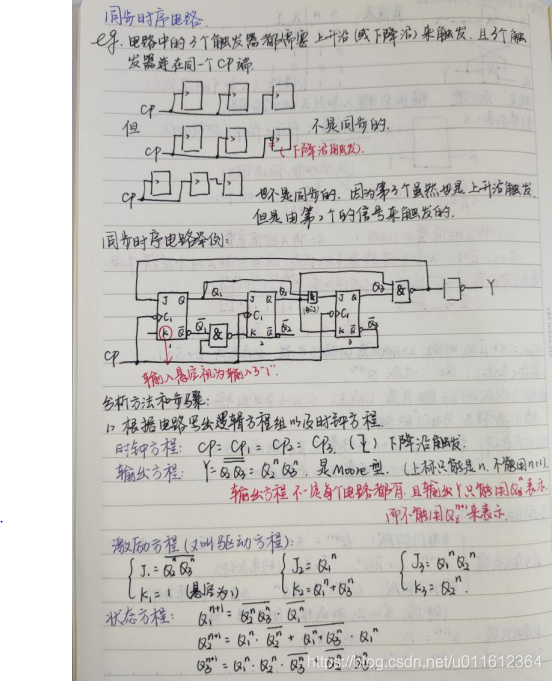 同步时序电路.
eg. 电路中的3个触发器都需要上升沿(或下降沿)来触发, 且3个触
发器连在同一个CP端.
CP
但 CP 不是同步的.
(下降沿触发)
CP 也不是同步的, 因为第3个虽然也是上升沿触发,
但是由第2个的信号来触发的.
同步时序电路举例:
J Q Q₁ J Q Q₂ & J Q Q₃ & Y
C₁ C₁ C₁
K Q̅ Q̅₁ & K Q̅ Q̅₂ K Q̅ Q̅₃
1 2 3
CP
输入悬空视为输入了"1".
分析方法和步骤:
1> 根据电路写出逻辑方程组以及时钟方程.
时钟方程: CP = CP₁ = CP₂ = CP₃. (↓) 下降沿触发.
输出方程: Y = Q₂Q₃ = Q₂ⁿQ₃ⁿ, 是Moore型. (上标只能是n, 不能用n+1).
输出方程不一定每个电路都有, 且输出Y只能用Q₂ⁿ表示
而不能用Q₂ⁿ⁺¹来表示.
激励方程(又叫驱动方程):
{ J₁ = Q₂ⁿQ₃ⁿ { J₂ = Q₁ⁿ { J₃ = Q₁ⁿQ₂ⁿ
K₁ = 1 (悬空为1) K₂ = Q₁ⁿ + Q₃ⁿ K₃ = Q₂ⁿ.
状态方程: Q₁ⁿ⁺¹ = Q₂ⁿQ₃ⁿ · Q₁ⁿ
Q₂ⁿ⁺¹ = Q₁ⁿ · Q₂ⁿ + Q₁ⁿ+Q₃ⁿ · Q₁ⁿ
Q₃ⁿ⁺¹ = Q₁ⁿ · Q₂ⁿ · Q₃ⁿ
https://blog.csdn.net/u011612364